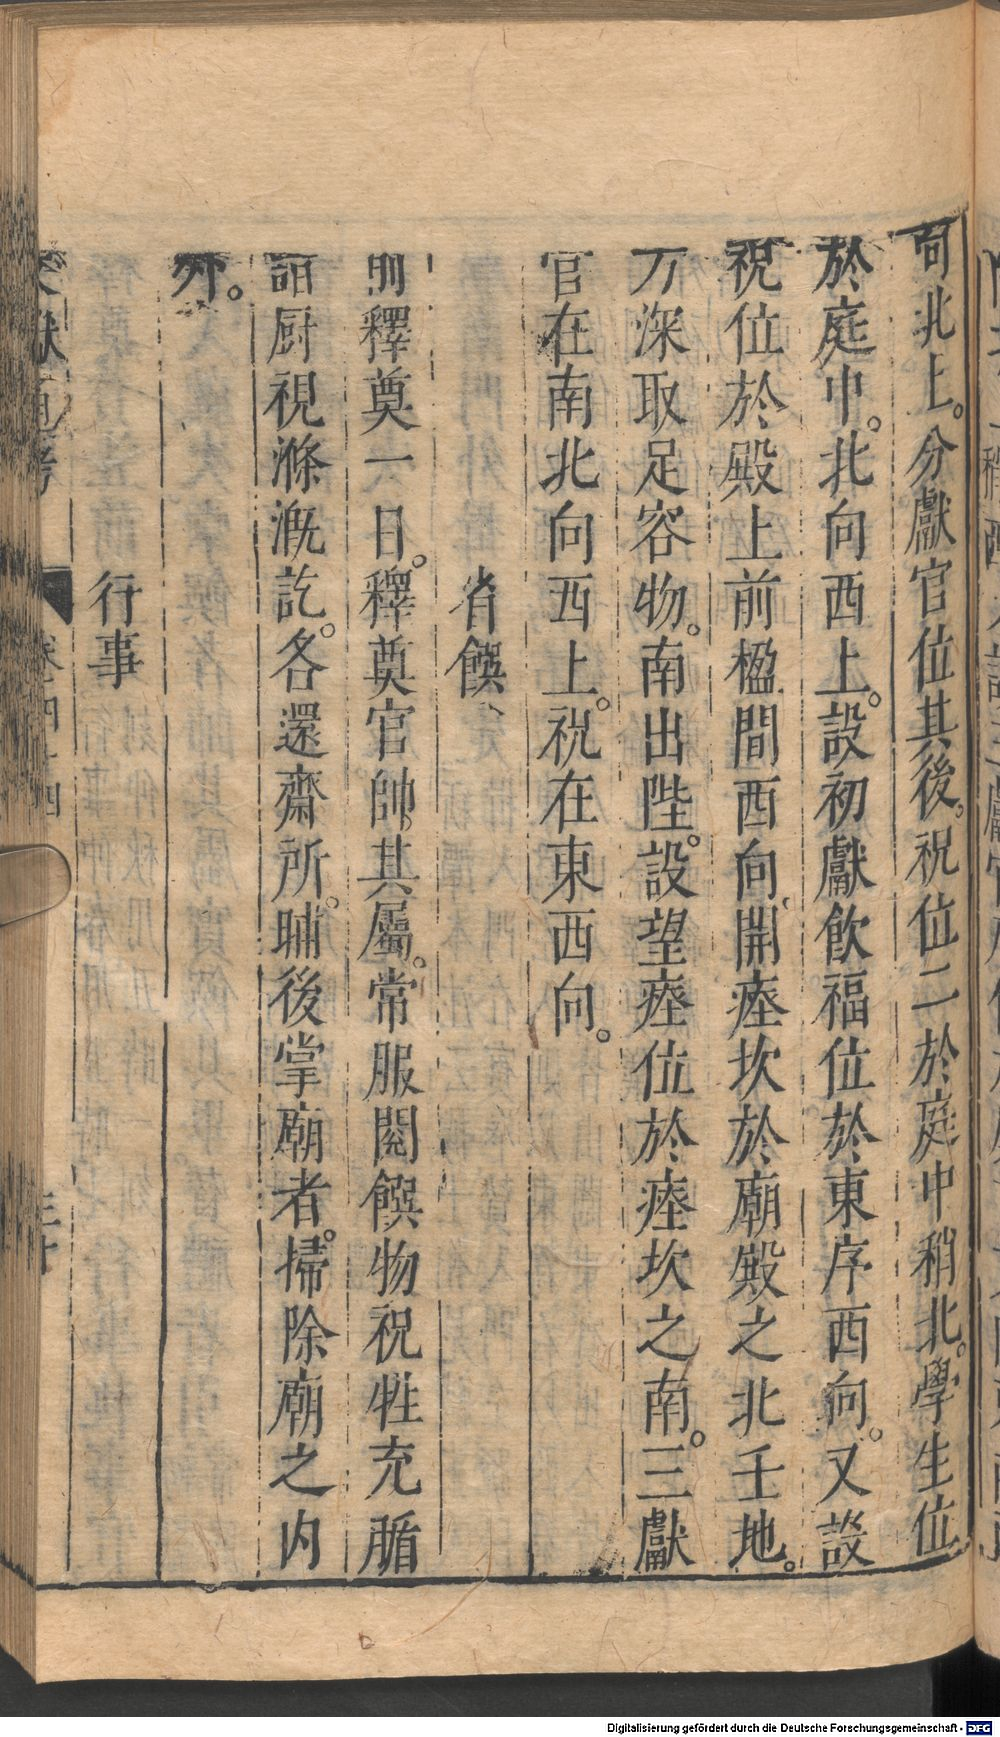 向北上。分獻官位其後。祝位二於庭中稍北。學生位
於庭中。北向西上。設初獻飲福位於東序西向。又設
祝位於殿上前楹間西向。開瘞坎於廟殿之北壬地。
方深取足容物。南出陛。設望瘞位於瘞坎之南。三獻
官在南北向西上。祝在東西向。
省饌
前釋奠一日。釋奠官帥其屬。常服閱饌物祝牲充腯
詣厨視滌溉訖。各還齋所。晡後掌廟者。掃除廟之內
外。
行事
文獻通考 卷之四十四 三十
Digitalisierung gefördert durch die Deutsche Forschungsgemeinschaft - DFG